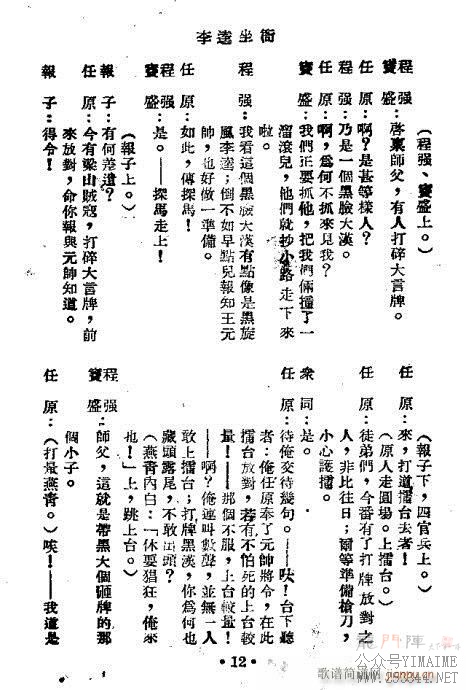 李逵坐衙
（程强、竇盛上。）
程强
竇盛：啓禀師父，有人打碎大言牌。
任原：啊？是甚等樣人？
程强：乃是一個黑臉大漢。
任原：啊，爲何不抓來見我？
竇盛：我們正要抓他，把我們倆撞了一
溜滾兒，他們就抄小路走下來
啦。
程强：我看這個黑臉大漢有點像是黑旋
風李逵；倒不如早點兒報知王元
帥，也好做一準備。
任原：如此，傳探馬！
程强
竇盛：是。——探馬走上！
（報子上。）
報子：有何差遣？
任原：今有梁山賊寇，打碎大言牌，前
來放對，命你報與元帥知道。
報子：得令！
（報子下，四官兵上。）
任原：來，打道擂台去者！
（原人走圓場。上擂台。）
任原：徒弟們，今番有了打牌放對之
人，非比往日；爾等準備槍刀，
小心護擂。
衆同：是。
任原：待俺交待幾句。——呔！台下聽
者：俺任原奉了元帥將令，在此
擂台放對，若有不怕死的上台較
量！——那個不服，上台較量！
——啊？俺連叫數聲，並無一人
敢上擂台；打牌黑漢，你爲何也
藏頭露尾，不敢出頭？
（燕青內白：「休要猖狂，俺來
也！」上，跳上台。）
程强
竇盛：師父，這就是帶黑大個砸牌的那
個小子。
任原：（打量燕青。）唉！——我道是
•12•
龍門陣
公众号YIMAIME
歌谱简谱网
www.jianpu.cn